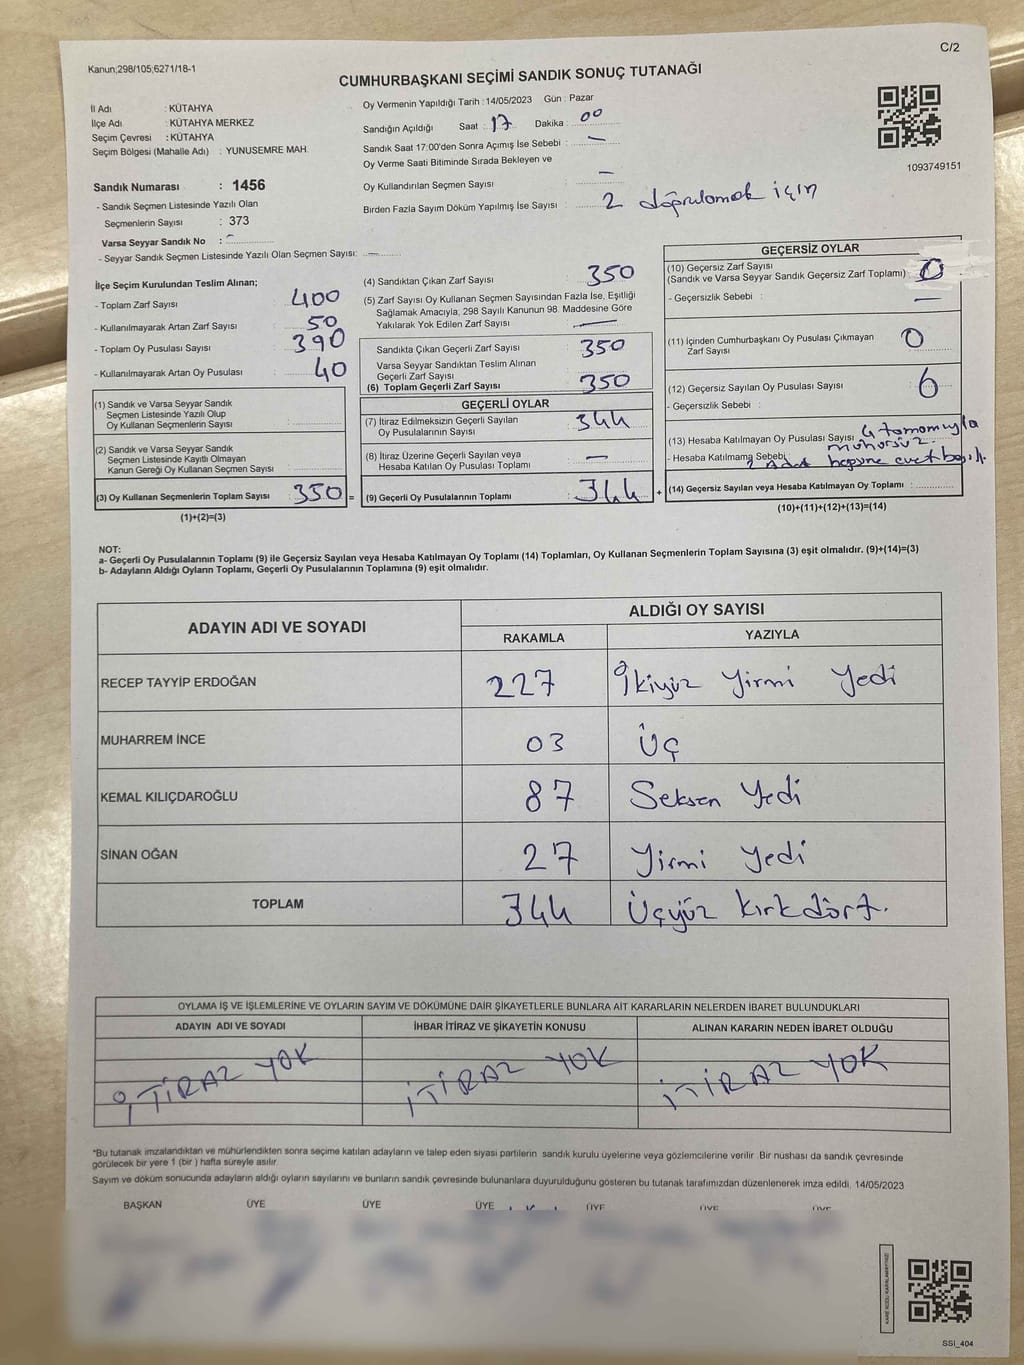 C/2
Kanun;298/105;6271/18-1
CUMHURBAŞKANI SEÇİMİ SANDIK SONUÇ TUTANAĞI
İl Adı : KÜTAHYA
İlçe Adı : KÜTAHYA MERKEZ
Seçim Çevresi : KÜTAHYA
Seçim Bölgesi (Mahalle Adı) : YUNUSEMRE MAH.
Sandık Numarası : 1456
- Sandık Seçmen Listesinde Yazılı Olan
Seçmenlerin Sayısı : 373
Varsa Seyyar Sandık No : –
- Seyyar Sandık Seçmen Listesinde Yazılı Olan Seçmen Sayısı: —
Oy Vermenin Yapıldığı Tarih :14/05/2023 Gün : Pazar
Sandığın Açıldığı Saat : 17 Dakika : 00
Sandık Saat 17:00'den Sonra Açımış İse Sebebi : —
Oy Verme Saati Bitiminde Sırada Bekleyen ve
Oy Kullandırılan Seçmen Sayısı : —
Birden Fazla Sayım Döküm Yapılmış İse Sayısı : 2 doğrulamak için
1093749151
İlçe Seçim Kurulundan Teslim Alınan;
- Toplam Zarf Sayısı 400
- Kullanılmayarak Artan Zarf Sayısı 50
- Toplam Oy Pusulası Sayısı 390
- Kullanılmayarak Artan Oy Pusulası 40
(1) Sandık ve Varsa Seyyar Sandık
Seçmen Listesinde Yazılı Olup
Oy Kullanan Seçmenlerin Sayısı :
(2) Sandık ve Varsa Seyyar Sandık
Seçmen Listesinde Kayıtlı Olmayan
Kanun Gereği Oy Kullanan Seçmen Sayısı :
(3) Oy Kullanan Seçmenlerin Toplam Sayısı : 350 =
(1)+(2)=(3)
(4) Sandıktan Çıkan Zarf Sayısı 350
(5) Zarf Sayısı Oy Kullanan Seçmen Sayısından Fazla İse, Eşitliği
Sağlamak Amacıyla; 298 Sayılı Kanunun 98. Maddesine Göre
Yakılarak Yok Edilen Zarf Sayısı : —
Sandıkta Çıkan Geçerli Zarf Sayısı : 350
Varsa Seyyar Sandıktan Teslim Alınan
Geçerli Zarf Sayısı
(6) Toplam Geçerli Zarf Sayısı : 350
GEÇERLİ OYLAR
(7) İtiraz Edilmeksizin Geçerli Sayılan
Oy Pusulalarının Sayısı : 344
(8) İtiraz Üzerine Geçerli Sayılan veya
Hesaba Katılan Oy Pusulası Toplamı : —
(9) Geçerli Oy Pusulalarının Toplamı : 344 +
GEÇERSİZ OYLAR
(10) Geçersiz Zarf Sayısı
(Sandık ve Varsa Seyyar Sandık Geçersiz Zarf Toplamı) 0
- Geçersizlik Sebebi : —
(11) İçinden Cumhurbaşkanı Oy Pusulası Çıkmayan
Zarf Sayısı 0
(12) Geçersiz Sayılan Oy Pusulası Sayısı 6
- Geçersizlik Sebebi :
(13) Hesaba Katılmayan Oy Pusulası Sayısı 4 tamamıyla
mühürsüz.
- Hesaba Katılmama Sebebi: 2 adet hepsine evet basılı.
(14) Geçersiz Sayılan veya Hesaba Katılmayan Oy Toplamı :
(10)+(11)+(12)+(13)=(14)
NOT:
a- Geçerli Oy Pusulalarının Toplamı (9) ile Geçersiz Sayılan veya Hesaba Katılmayan Oy Toplamı (14) Toplamları, Oy Kullanan Seçmenlerin Toplam Sayısına (3) eşit olmalıdır. (9)+(14)=(3)
b- Adayların Aldığı Oyların Toplamı, Geçerli Oy Pusulalarının Toplamına (9) eşit olmalıdır.
ADAYIN ADI VE SOYADI ALDIĞI OY SAYISI
RAKAMLA YAZIYLA
RECEP TAYYİP ERDOĞAN 227 İkiyüz yirmi yedi
MUHARREM İNCE 03 Üç
KEMAL KILIÇDAROĞLU 87 Seksen yedi
SİNAN OĞAN 27 Yirmi yedi
TOPLAM 344 Üçyüz kırkdört.
OYLAMA İŞ VE İŞLEMLERİNE VE OYLARIN SAYIM VE DÖKÜMÜNE DAİR ŞİKAYETLERLE BUNLARA AİT KARARLARIN NELERDEN İBARET BULUNDUKLARI
ADAYIN ADI VE SOYADI İHBAR İTİRAZ VE ŞİKAYETİN KONUSU ALINAN KARARIN NEDEN İBARET OLDUĞU
İTİRAZ YOK İTİRAZ YOK İTİRAZ YOK
*Bu tutanak imzalandıktan ve mühürlendikten sonra seçime katılan adayların ve talep eden siyasi partilerin sandık kurulu üyelerine veya gözlemcilerine verilir. Bir nushası da sandık çevresinde
görülecek bir yere 1 (bir ) hafta süreyle asılır.
Sayım ve döküm sonucunda adayların aldığı oyların sayılarını ve bunların sandık çevresinde bulunanlara duyurulduğunu gösteren bu tutanak tarafımızdan düzenlenerek imza edildi. 14/05/2023
BAŞKAN ÜYE ÜYE ÜYE ÜYE ÜYE ÜYE
SSI_404